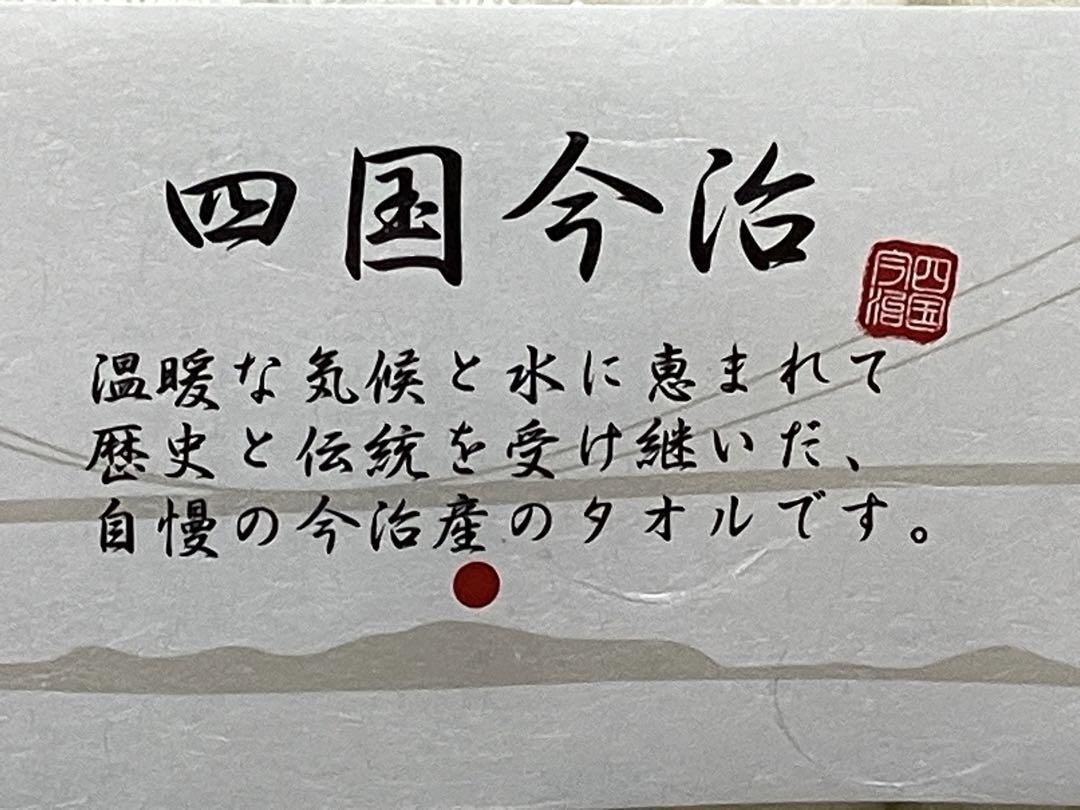 四国今治
四国
今治
温暖な気候と水に恵まれて
歴史と伝統を受け継いだ、
自慢の今治産のタオルです。